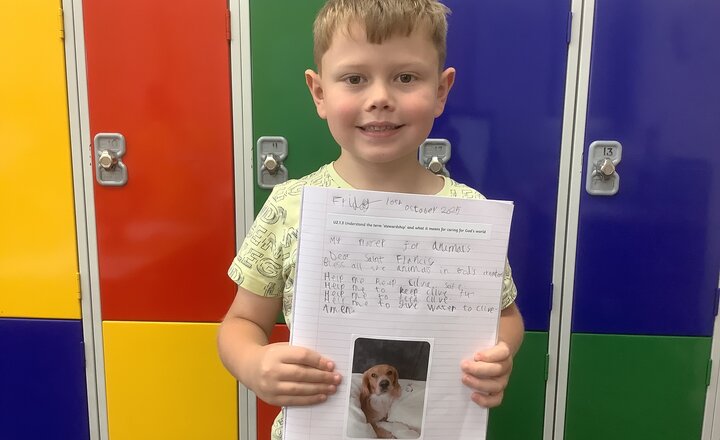 Friday 10th October 2025
U2.1.3 Understand the term 'stewardship' and what it means for caring for God's world
My for animals
Dear Saint Francis
Bless all the animals in God's
Help me keep Clive safe.
Help me to keep Clive
Help me to feed Clive.
Help me to give Water to Clive.
Amen.
11
13